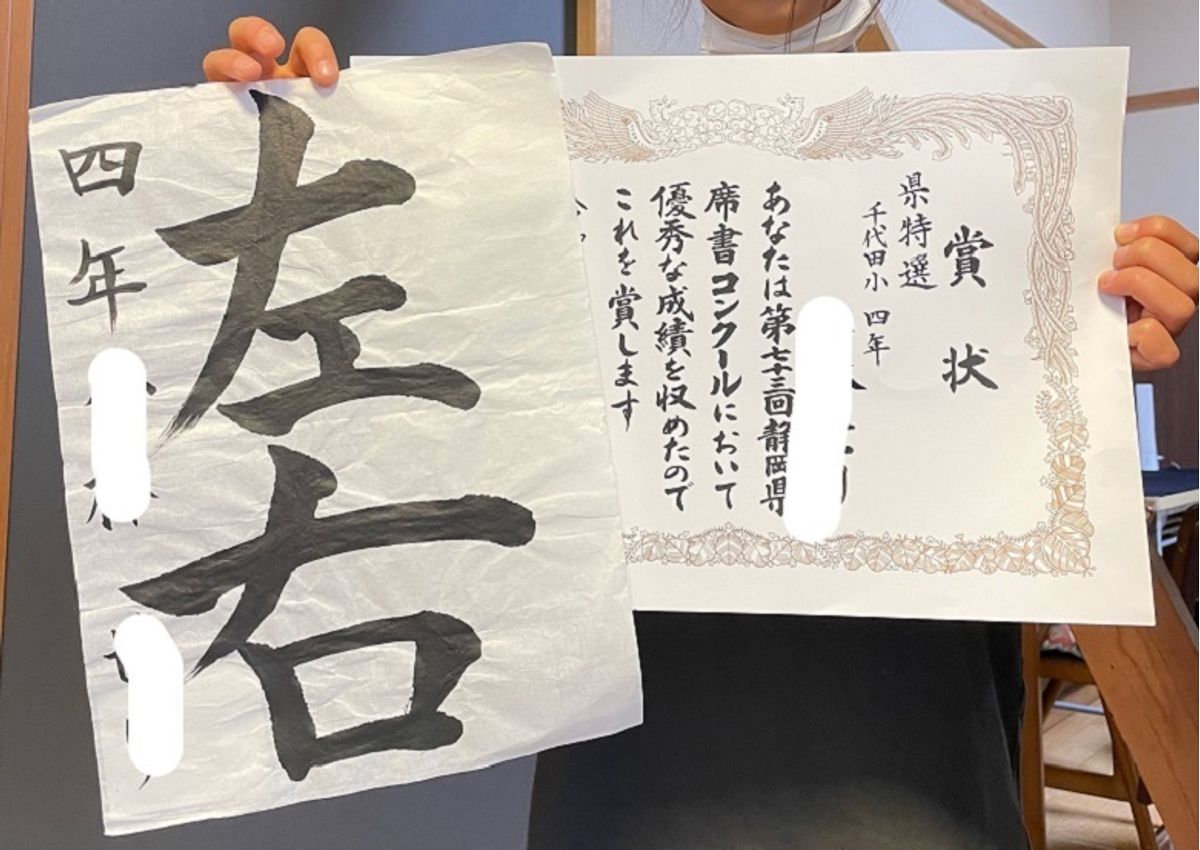 賞状
県特選
千代田小 四年
あなたは第七十三回静岡県
席書コンクールにおいて
優秀な成績を収めたので
これを賞します
左右
四年